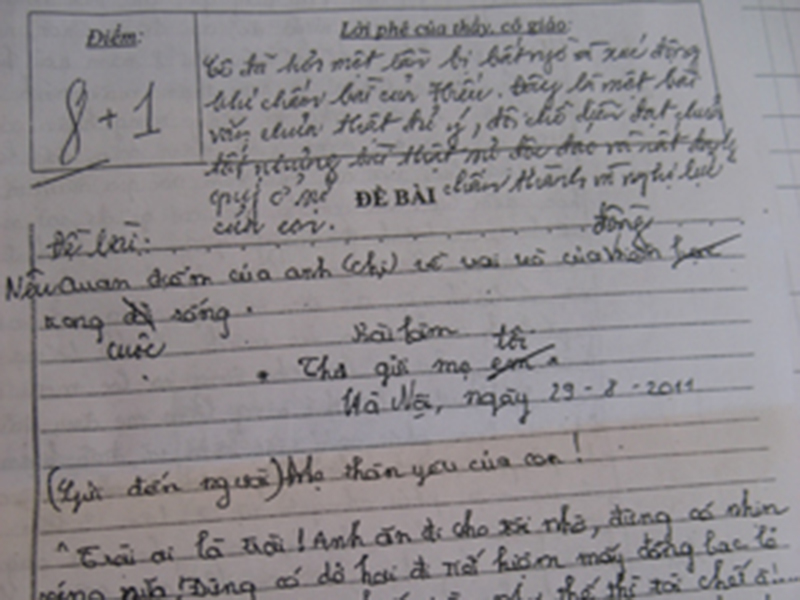 Điểm:
Lời phê của thầy, cô giáo:
8 + 1
Cô đã hơn một lần bị bất ngờ và xúc động
khi chấm bài của Hiếu. Đây là một bài
văn chưa thật đủ ý, đôi chỗ diễn đạt chưa
tốt nhưng bài thật sự độc đáo và rất đáng
quý ở sự chân thành và nghị lực
của con.
ĐỀ BÀI
Đề bài:
Nêu quan điểm của anh (chị) về vai trò của đồng
trong cuộc sống.
Bài làm
Thư gửi mẹ tôi
Hà Nội, ngày 29 - 8 - 2011
(Gửi đến người) Mẹ thân yêu của con!
"Trời ơi là trời! Anh ăn đi cho tôi nhờ, đừng có nhịn
nữa! Đừng có dở hơi đi tiết kiệm mấy đồng bạc lẻ
thế thì tôi chết